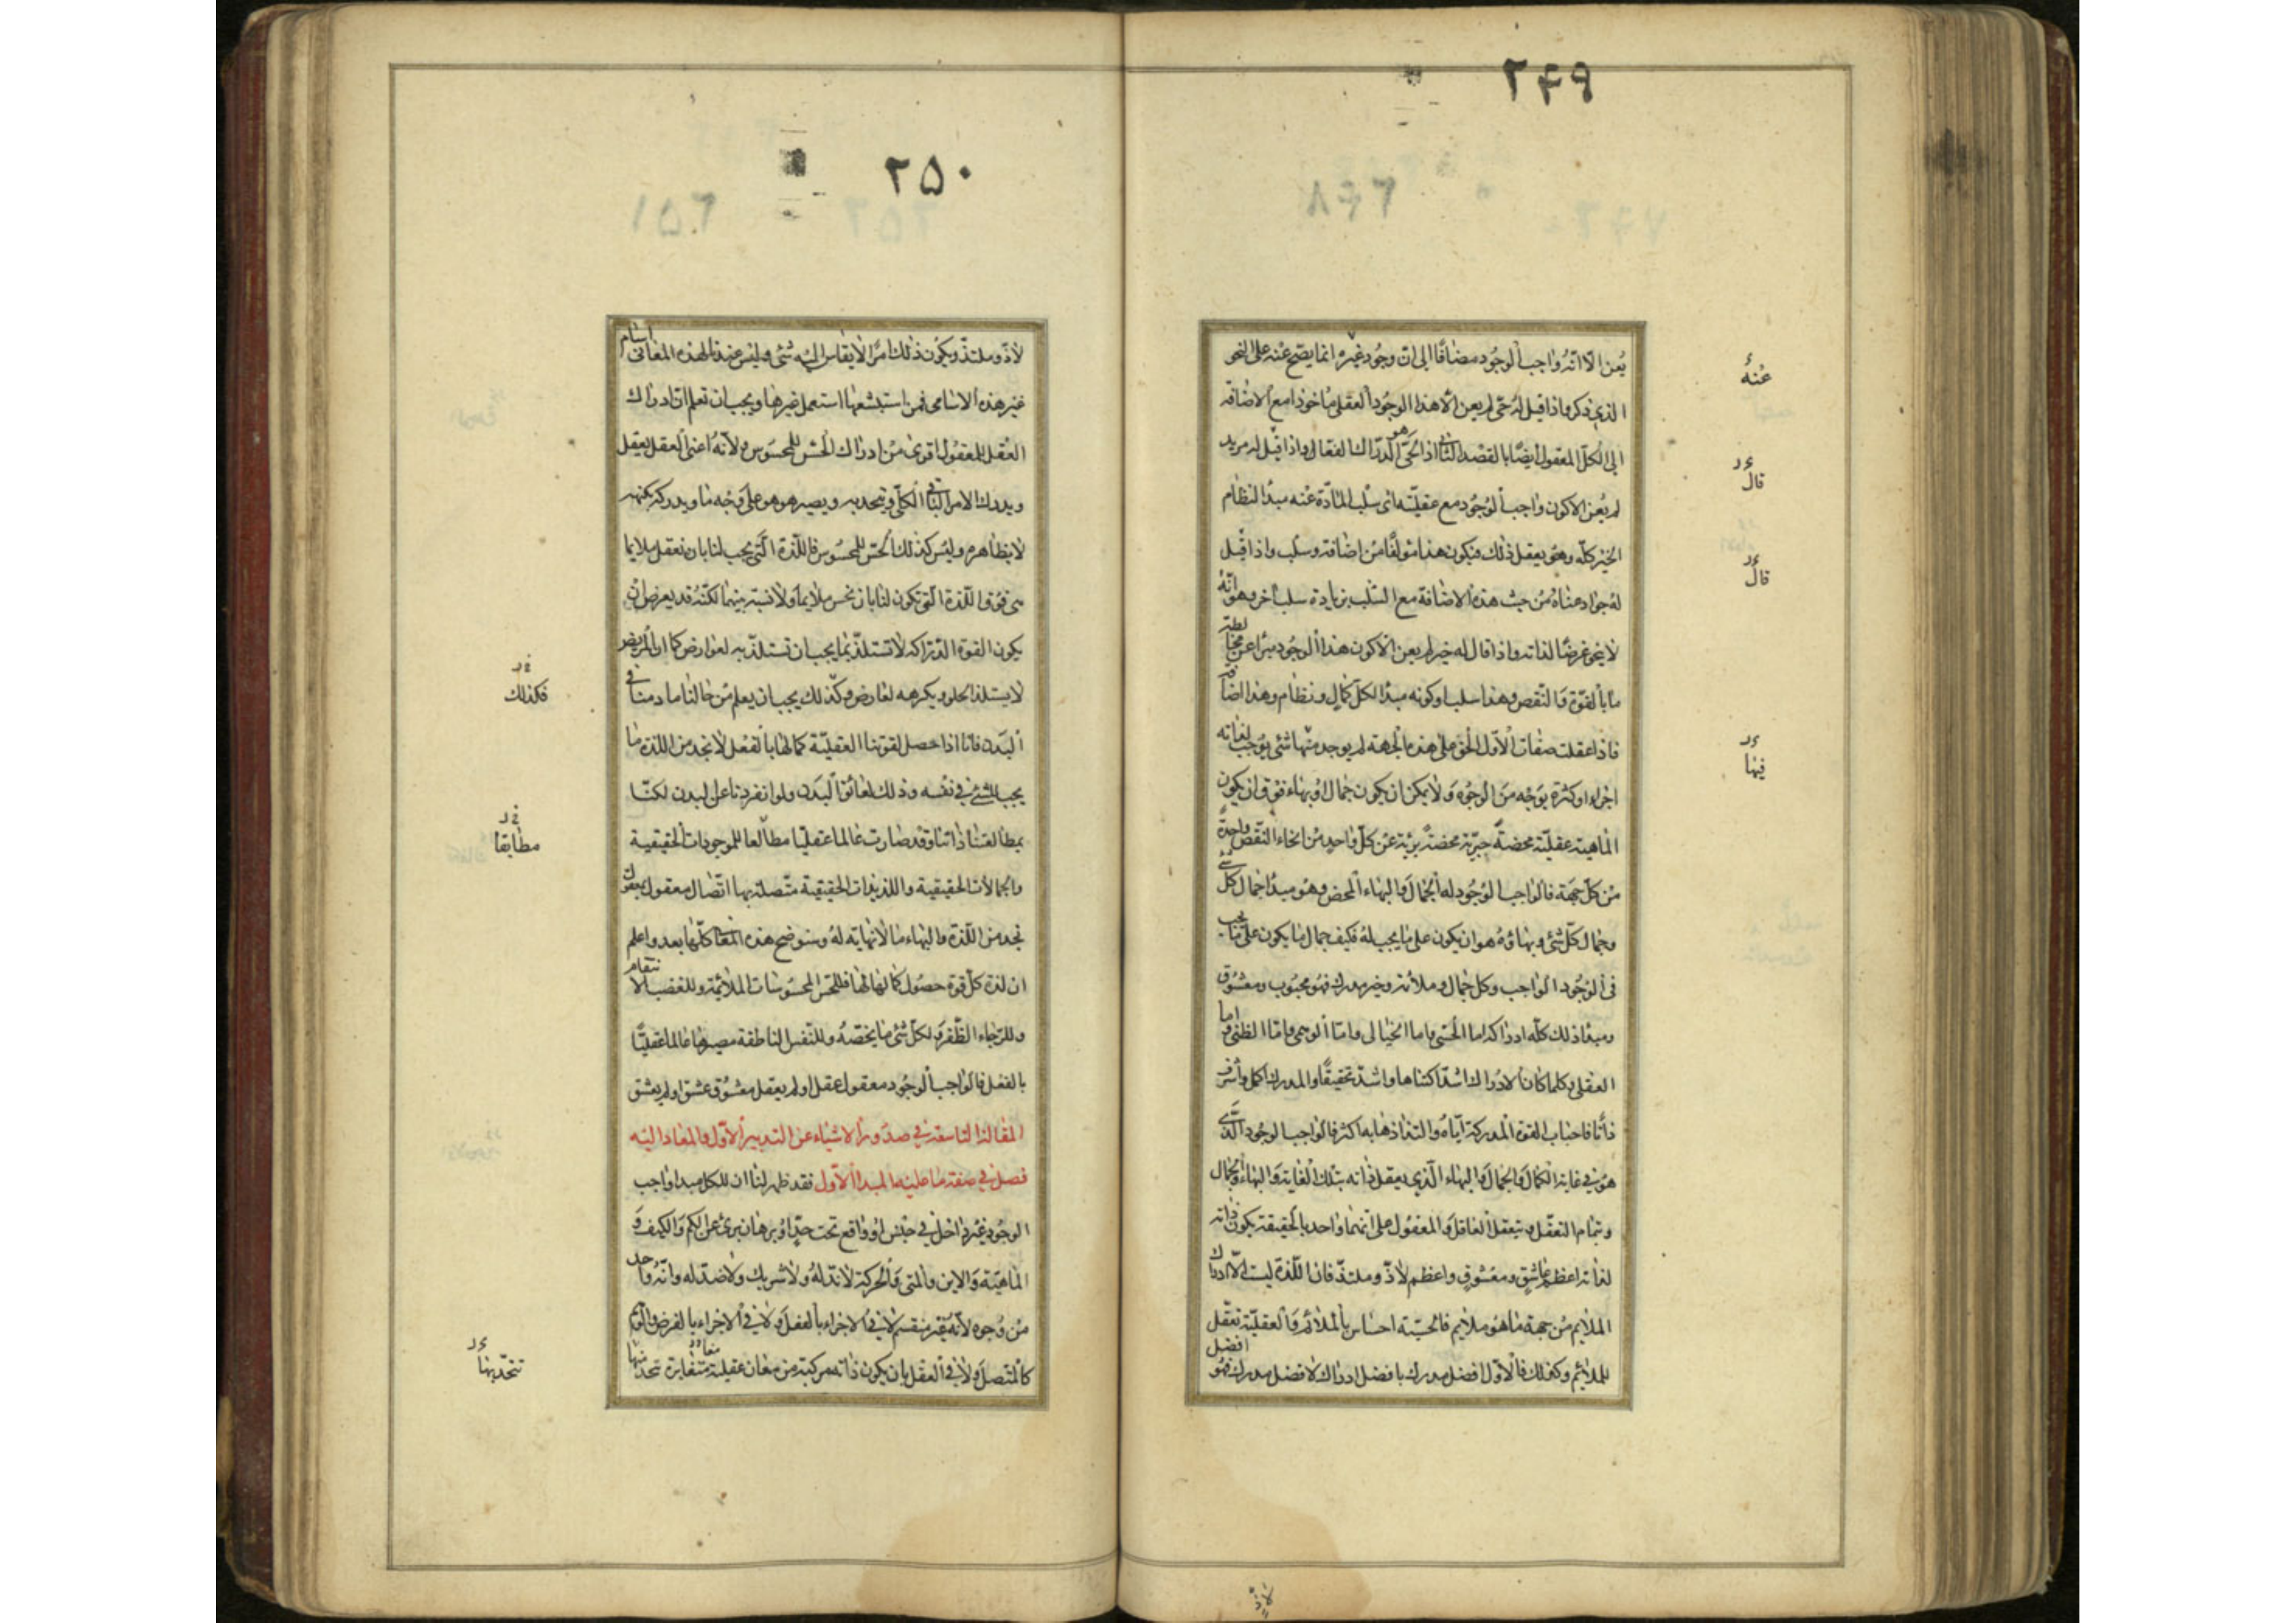 ٢۴٩
يعن الا انه واجب الوجود مضافا الى ان وجود غيره انما يصح عنه على النحو
الذى ذكر واذا قيل له حى لم يعن الا هذا الوجود العقلى ماخوذا مع الاضافة
الى الكل المعقول ايضا بالقصد الثانى اذ الحى هو الدراك الفعال واذا قيل له مريد
لم يعن الا كون واجب الوجود مع عقليته اى سلب المادة عنه مبدا لنظام
الخير كله وهو يعقل ذلك فيكون هذا مؤلفا من اضافة وسلب واذا قيل
له جواد عناه من حيث هذه الاضافة مع السلب بزيادة سلب اخر وهو انه
لا ينحو غرضا لذاته واذا قال له خير لم يعن الا كون هذا الوجود مبرا عن مخالطة
ما بالقوة والنقص وهذا سلب او كونه مبدا لكل كمال ونظام وهذا اضافة
فاذا عقلت صفات الاول الحق على هذه الجهة لم يوجد منها شئ يوجب لذاته
اجزاء او كثرة بوجه من الوجوه ولا يمكن ان يكون جمال او بهاء فوق ان يكون
الماهية عقلية محضة خيرية محضة برية عن كل واحد من انحاء النقص واحدة
من كل جهة فالواجب الوجود له الجمال والبهاء المحض وهو مبدا جمال كل شئ
وجمال كل شئ وبهاؤه هو ان يكون على ما يجب له فكيف جمال ما يكون على ما يجب
فى الوجود الواجب وكل جمال وملائمة وخير مدرك فهو محبوب ومعشوق
ومبدا ذلك كله ادراكه اما الحسى واما الخيالى واما الوهمى واما الظنى واما
العقلى وكلما كان الادراك اشد اكتناها واشد تحقيقا والمدرك اكمل واشرف
ذاتا فاحباب القوة المدركة اياه والتذاذها به اكثر فالواجب الوجود الذى
هو فى غاية الكمال والجمال والبهاء الذى يعقل ذاته بتلك الغاية والبهاء والجمال
وبتمام التعقل وبتعقل العاقل والمعقول على انهما واحد بالحقيقة يكون ذاته
لذاته اعظم عاشق ومعشوق واعظم لاذ وملتذ فان اللذة ليست الا ادراك
الملايم من جهة ما هو ملايم فالحسية احساس بالملائم والعقلية تعقل
للملائم وكذلك فالاول افضل مدرك بافضل ادراك لافضل مدرك فهو افضل
عنه
قال
قال
فيها
٢۵٠
لاذ وملتذ ويكون ذلك امرا لا يقاس اليه شئ وليس عندنا لهذه المعانى اسام
غير هذه الاسامى فمن استبشعها استعمل غيرها ويجب ان تعلم ان ادراك
العقل للمعقول اقوى من ادراك الحس للمحسوس لانه اعنى العقل يعقل
ويدرك الامر الباقى الكلى ويتحد به ويصير هو هو على وجه ما ويدركه بكنهه
لا بظاهره وليس كذلك الحس للمحسوس فاللذة التى يجب لنا بان نعقل ملايما
هى فوق اللذة التى تكون لنا بان نحس ملايما ولا نسبة بينهما لكنه قد يعرض ان
يكون القوة الدراكة لا تستلذ بما يجب ان تستلذ به لعوارض كما ان المريض
لا يستلذ الحلو ويكرهه لعارض وكذلك يجب ان يعلم من حالنا ما دمنا فى
البدن فانا اذا حصل لقوتنا العقلية كمالها بالفعل لا نجد من اللذة ما
يجب للشئ فى نفسه وذلك لعائق البدن ولو انفردنا عن البدن لكنا
بمطالعتنا ذاتنا وقد صارت عالما عقليا مطالعا للموجودات الحقيقية
والجمالات الحقيقية واللذيذات الحقيقية متصلة بها اتصال معقول بمعقول
نجد من اللذة والبهاء ما لا نهاية له وسنوضح هذه المعانى كلها بعد واعلم
ان لذة كل قوة حصول كمالها لها فللحس المحسوسات الملائمة وللغضب الانتقام
وللرجاء الظفر ولكل شئ ما يخصه وللنفس الناطقة مصيرها عالما عقليا
بالفعل فالواجب الوجود معقول عقل او لم يعقل معشوق عشق او لم يعشق
المقالة التاسعة فى صدور الاشياء عن التدبير الاول والمعاد اليه
فصل فى صفة فاعلية المبدا الاول فقد ظهر لنا ان للكل مبدا واجب
الوجود غير داخل فى جنس او واقع تحت حد او برهان برئ عن الكم والكيف و
الماهية والاين والمتى والحركة لا ند له ولا شريك ولا ضد له وانه واحد
من وجوه لانه غير منقسم لا فى الاجزاء بالفعل ولا فى الاجزاء بالفرض والوهم
كالمتصل ولا فى العقل بان يكون ذاته مركبة من معان عقلية متغايرة تتحد منها
فكذلك
مطابقا
تتحد بها